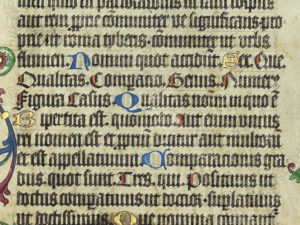 aut rem proprie communiter ve significans pro
prie ut roma tyberis. communiter ut urbs
flumen. Nomini quot accidunt Sex. Que.
Qualitas. Comparacio. Genus. Numerus
Figura Casus. Qualitas nominum in quo est
Bipertita est. quomodo. Aut enim unius
nomen est et proprium dicitur aut multorum
et est appellatiuum Comparacionis gra
dus. quot sunt. Tres. qui. Positiuus ut
doctus comparatiuus ut doctior. superlatiuus
ut doctissimus